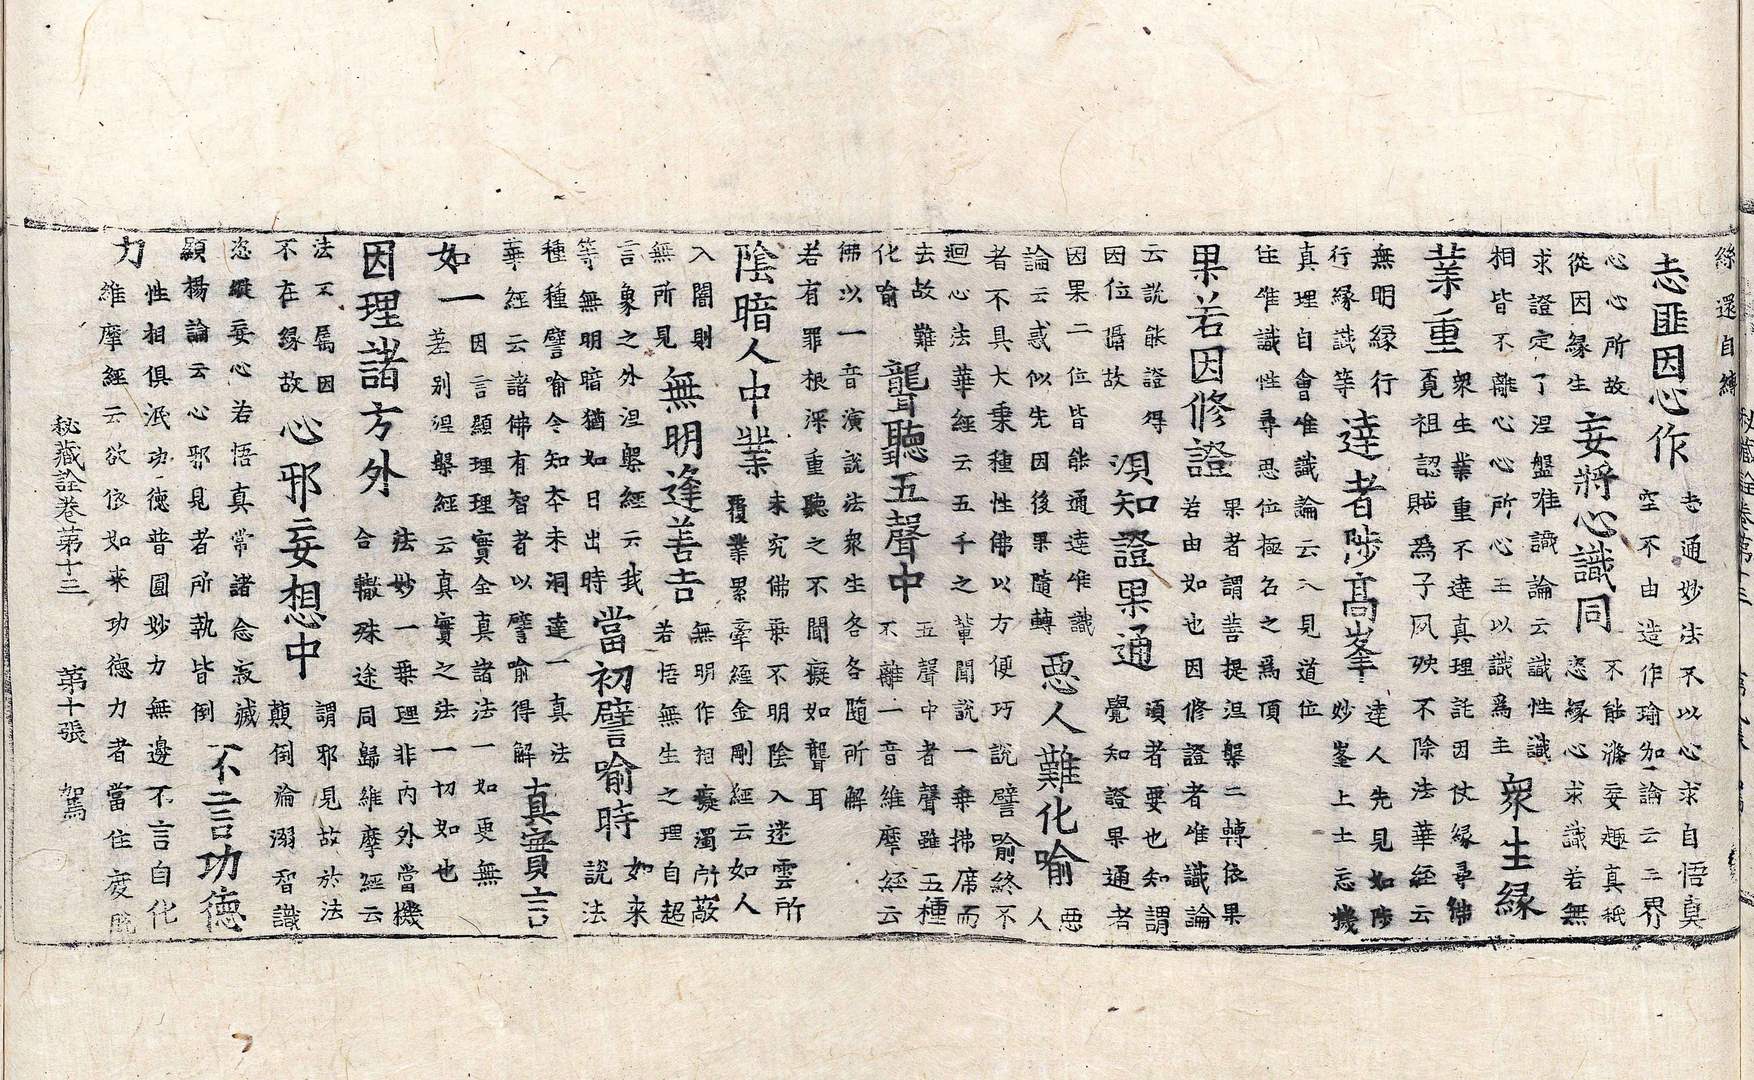 絲還自縛
恚匪因心作
志通妙法不以心求自悟真
空不由造作瑜伽論云三界
心心所故
從因緣生
妄將心識同
不能滌妄趣真秖
恣緣心求識若無
求證定了涅盤唯識論云識性識
相皆不離心心所心王以識爲主
衆生緣
業重
衆生業重不達真理託因仗緣尋佛
覔祖認賊爲子風殃不除法華經云
無明緣行
行緣識等
達者陟高峯
達人先見如陟
妙峯上士忘機
真理自會唯識論云入見道位
住唯識性尋思位極名之爲頂
果若因修證
果者謂菩提涅槃二轉依果
若由如也因修證者唯識論
云說能證得
因位故
須知證果通
須者要也知謂
覺知證果通者
因果二位皆能通達唯識
論云或似先因後果隨轉
惡人難化喻
惡
人
者不具大乗種性佛以方便巧說譬喻終不
迴心法華經云五千之輩聞說一乗拂席而
去故難
化喻
聾聽五聲中
五聲中者聲雖五種
不離一音維摩經云
佛以一音演說法衆生各各隨所解
若有罪根深重聽之不聞癡如聾耳
陰暗人中業
未究佛乗不明陰入迷雲所
覆業累牽經金剛經云如人
入闇則
無所見
無明逢善吉
無明作相癡濁所蔽
若悟無生之理自超
言象之外涅槃經云我
等無明暗猶如日出時
當初譬喻時
如來
說法
種種譬喻令知本末洞達一真法
華經云諸佛有智者以譬喻得解
真實言
如一
因言顯理理實全真諸法一如更無
差別涅槃經云真實之法一切如也
因理諸方外
法妙一乗理非內外當機
合轍殊途同歸維摩經云
法不属因
不在緣故
心邪妄想中
謂邪見故於法
顛倒淪溺智識
恣縱妄心若悟真常諸念寂滅
顯揚論云心邪見者所執皆倒
不言功德
力
性相俱泯功德普圓妙力無邊不言自化
維摩經云欲依如來功德力者當住度脫
秘藏詮卷第十三 第十張 駕